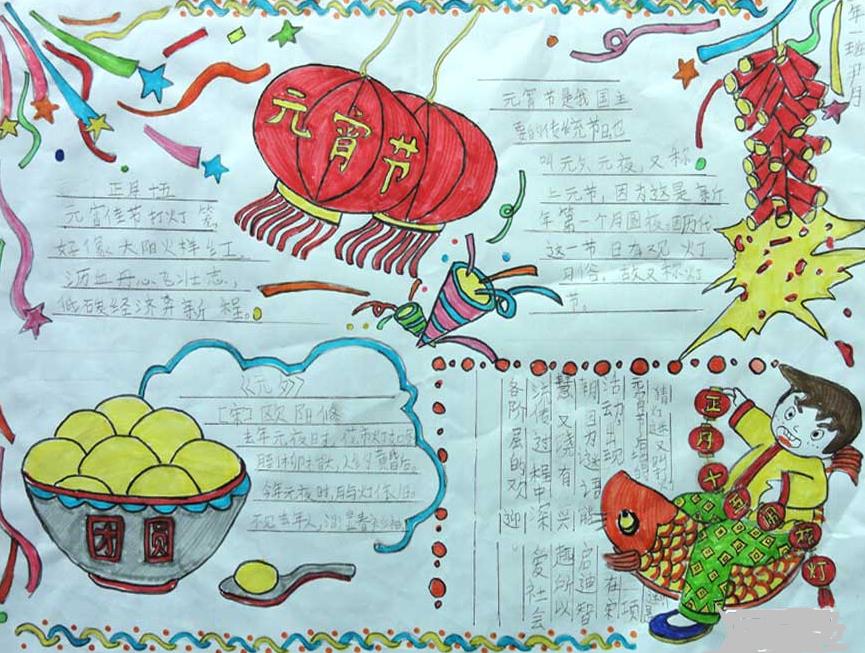 元宵节
正月十五
元宵佳节打灯笼，
好像太阳火样红。
沥血丹心飞壮志，
低碳经济奔新程。
元宵节是我国主
要的传统节日，也
叫元夕、元夜，又称
上元节，因为这是新
年第一个月圆夜。因历代
这一节日有观灯
习俗，故又称灯
节。
《元夕》
[宋]欧阳修
去年元夜时，花市灯如
今年元夜时，月与灯依旧。
不见去年人，
团圆
正月十五闹花灯
猜灯谜又
活动，出现
朝。因为谜语能启迪智
慧又饶有兴趣，所以
流传过程中深受社会
各阶层的欢迎